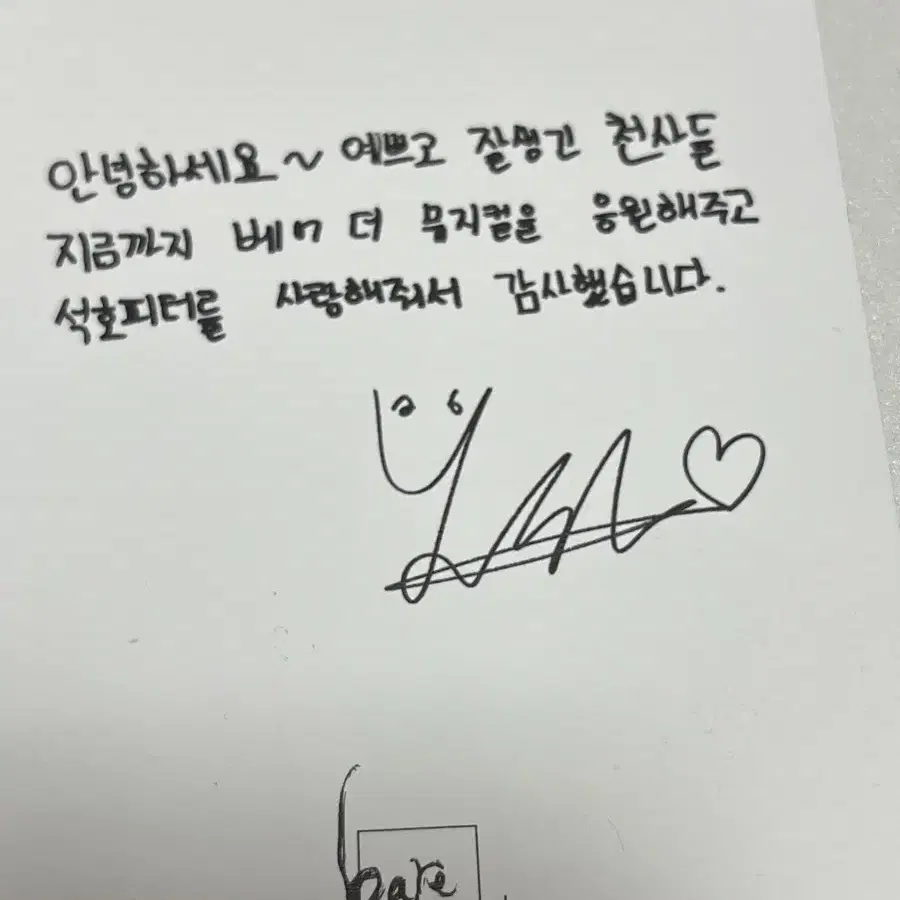 안녕하세요~ 예쁘고 잘생긴 천사들
지금까지 베어 더 뮤지컬을 응원해주고
석호피터를 사랑해줘서 감사했습니다.
bare